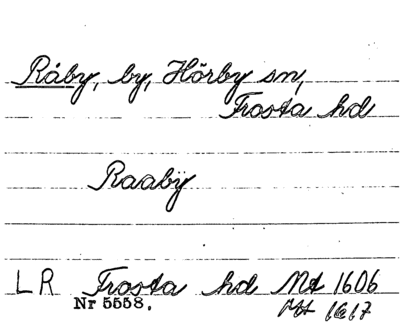 Råby, by, Hörby sn,
Frosta hd
Raabÿ
LR Frosta hd Mt 1606
Nr 5558. Mt 1617